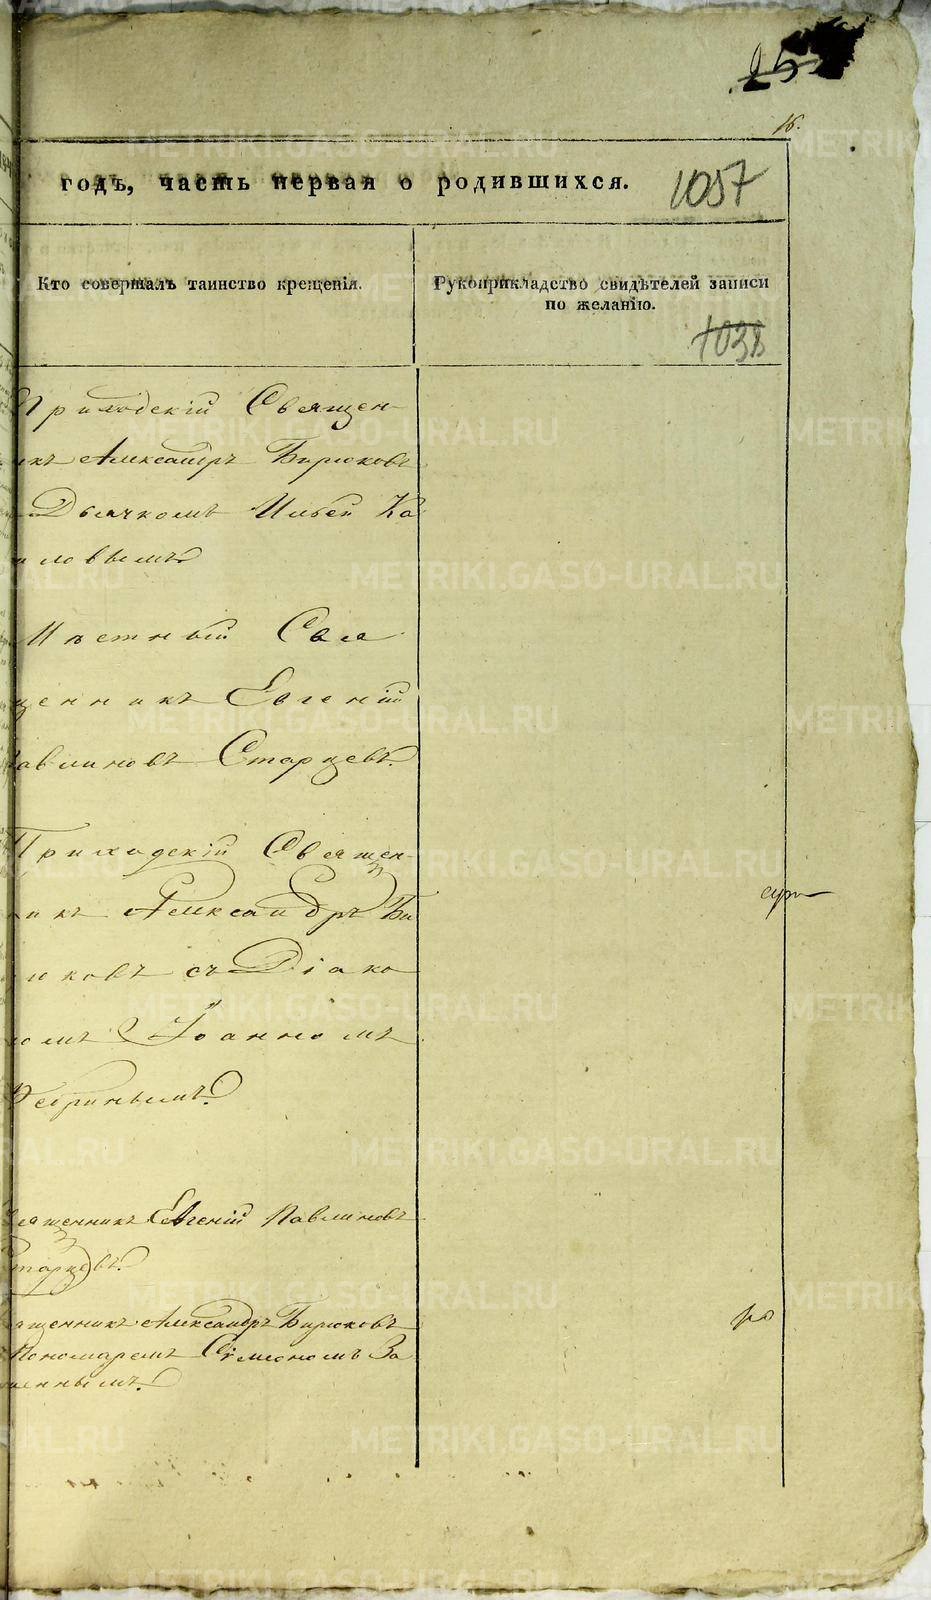 25
16.
годъ, часть первая о родившихся.
1057
Кто совершалъ таинство крещенія.
Рукоприкладство свидѣтелей записи
по желанію.
1038
Приходскій Священ-
икъ Александръ Бирюковъ
Дьячкомъ Ильей Ка
иловымъ.
Мѣстный Свя
щенникъ Евгеній
авлиновъ Старцевъ.
Приходскій Священ-
икъ Александръ Би
юковъ съ Діако
омъ Іоанномъ
священникъ Евгеній Павлиновъ
Старцевъ.
ященникъ Александръ Бирюковъ
Пономаремъ Симеономъ За
METRIKI.GASO-URAL.RU